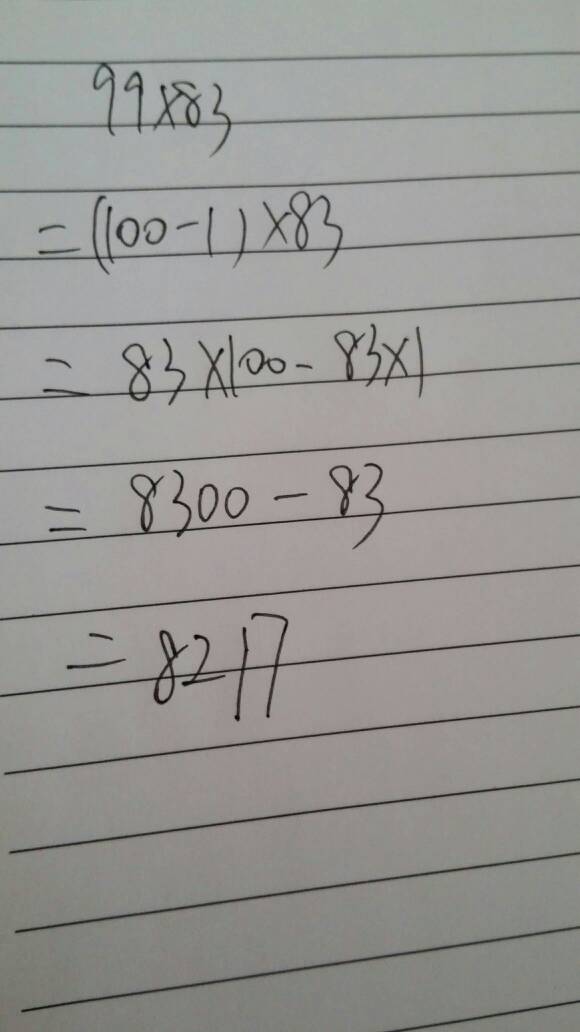 99×83
=(100-1)×83
=83×100-83×1
=8300-83
=8217